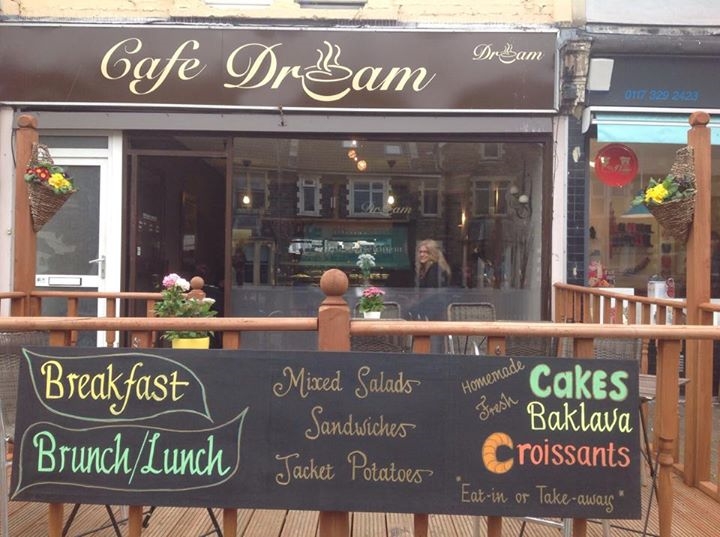 Cafe Dream
Dream
0117 329 2423
Dream
Breakfast
Brunch/Lunch
Mixed Salads
Sandwiches
Jacket Potatoes
Homemade
Fresh
Cakes
Baklava
Croissants
"Eat-in or Take-away"